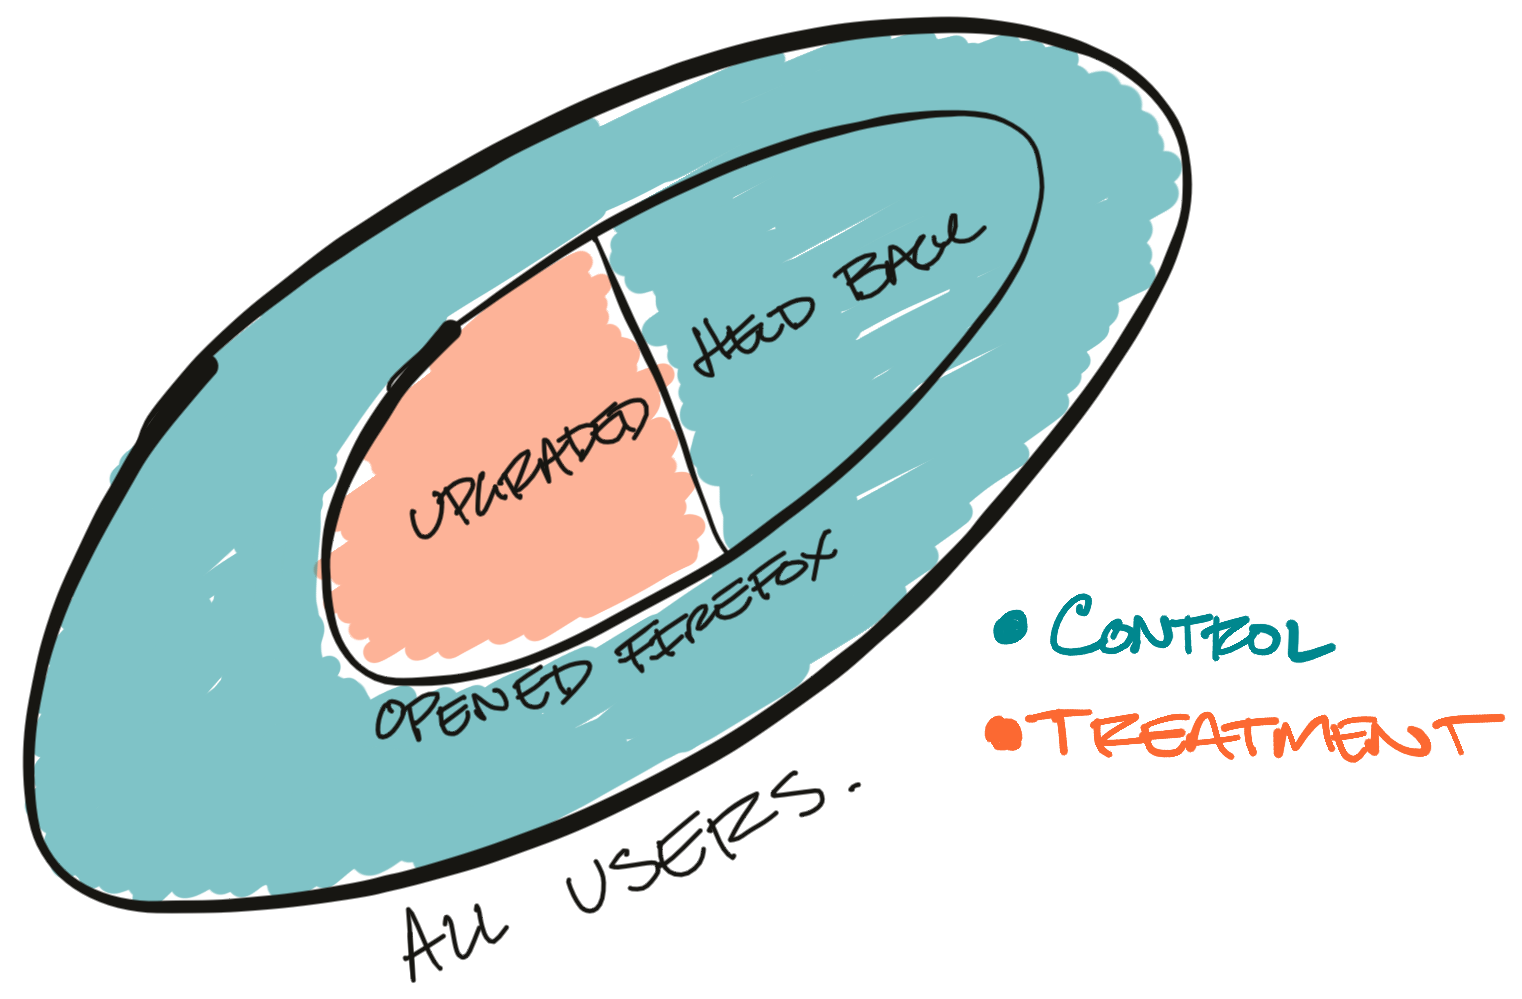 HELD BACK
UPGRADED
OPENED FIREFOX
ALL USERS.
CONTROL
TREATMENT